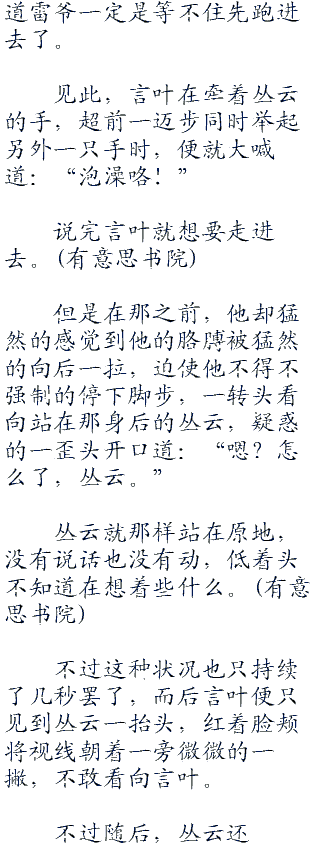 道雷爷一定是等不住先跑进
去了。
见此，言叶在牵着丛云
的手，超前一迈步同时举起
另外一只手时，便就大喊
道：“泡澡咯！”
说完言叶就想要走进
去。(有意思书院)
但是在那之前，他却猛
然的感觉到他的胳膊被猛然
的向后一拉，迫使他不得不
强制的停下脚步，一转头看
向站在那身后的丛云，疑惑
的一歪头开口道：“嗯？怎
么了，丛云。”
丛云就那样站在原地，
没有说话也没有动，低着头
不知道在想着些什么。(有意
思书院)
不过这种状况也只持续
了几秒罢了，而后言叶便只
见到丛云一抬头，红着脸颊
将视线朝着一旁微微的一
撇，不敢看向言叶。
不过随后，丛云还